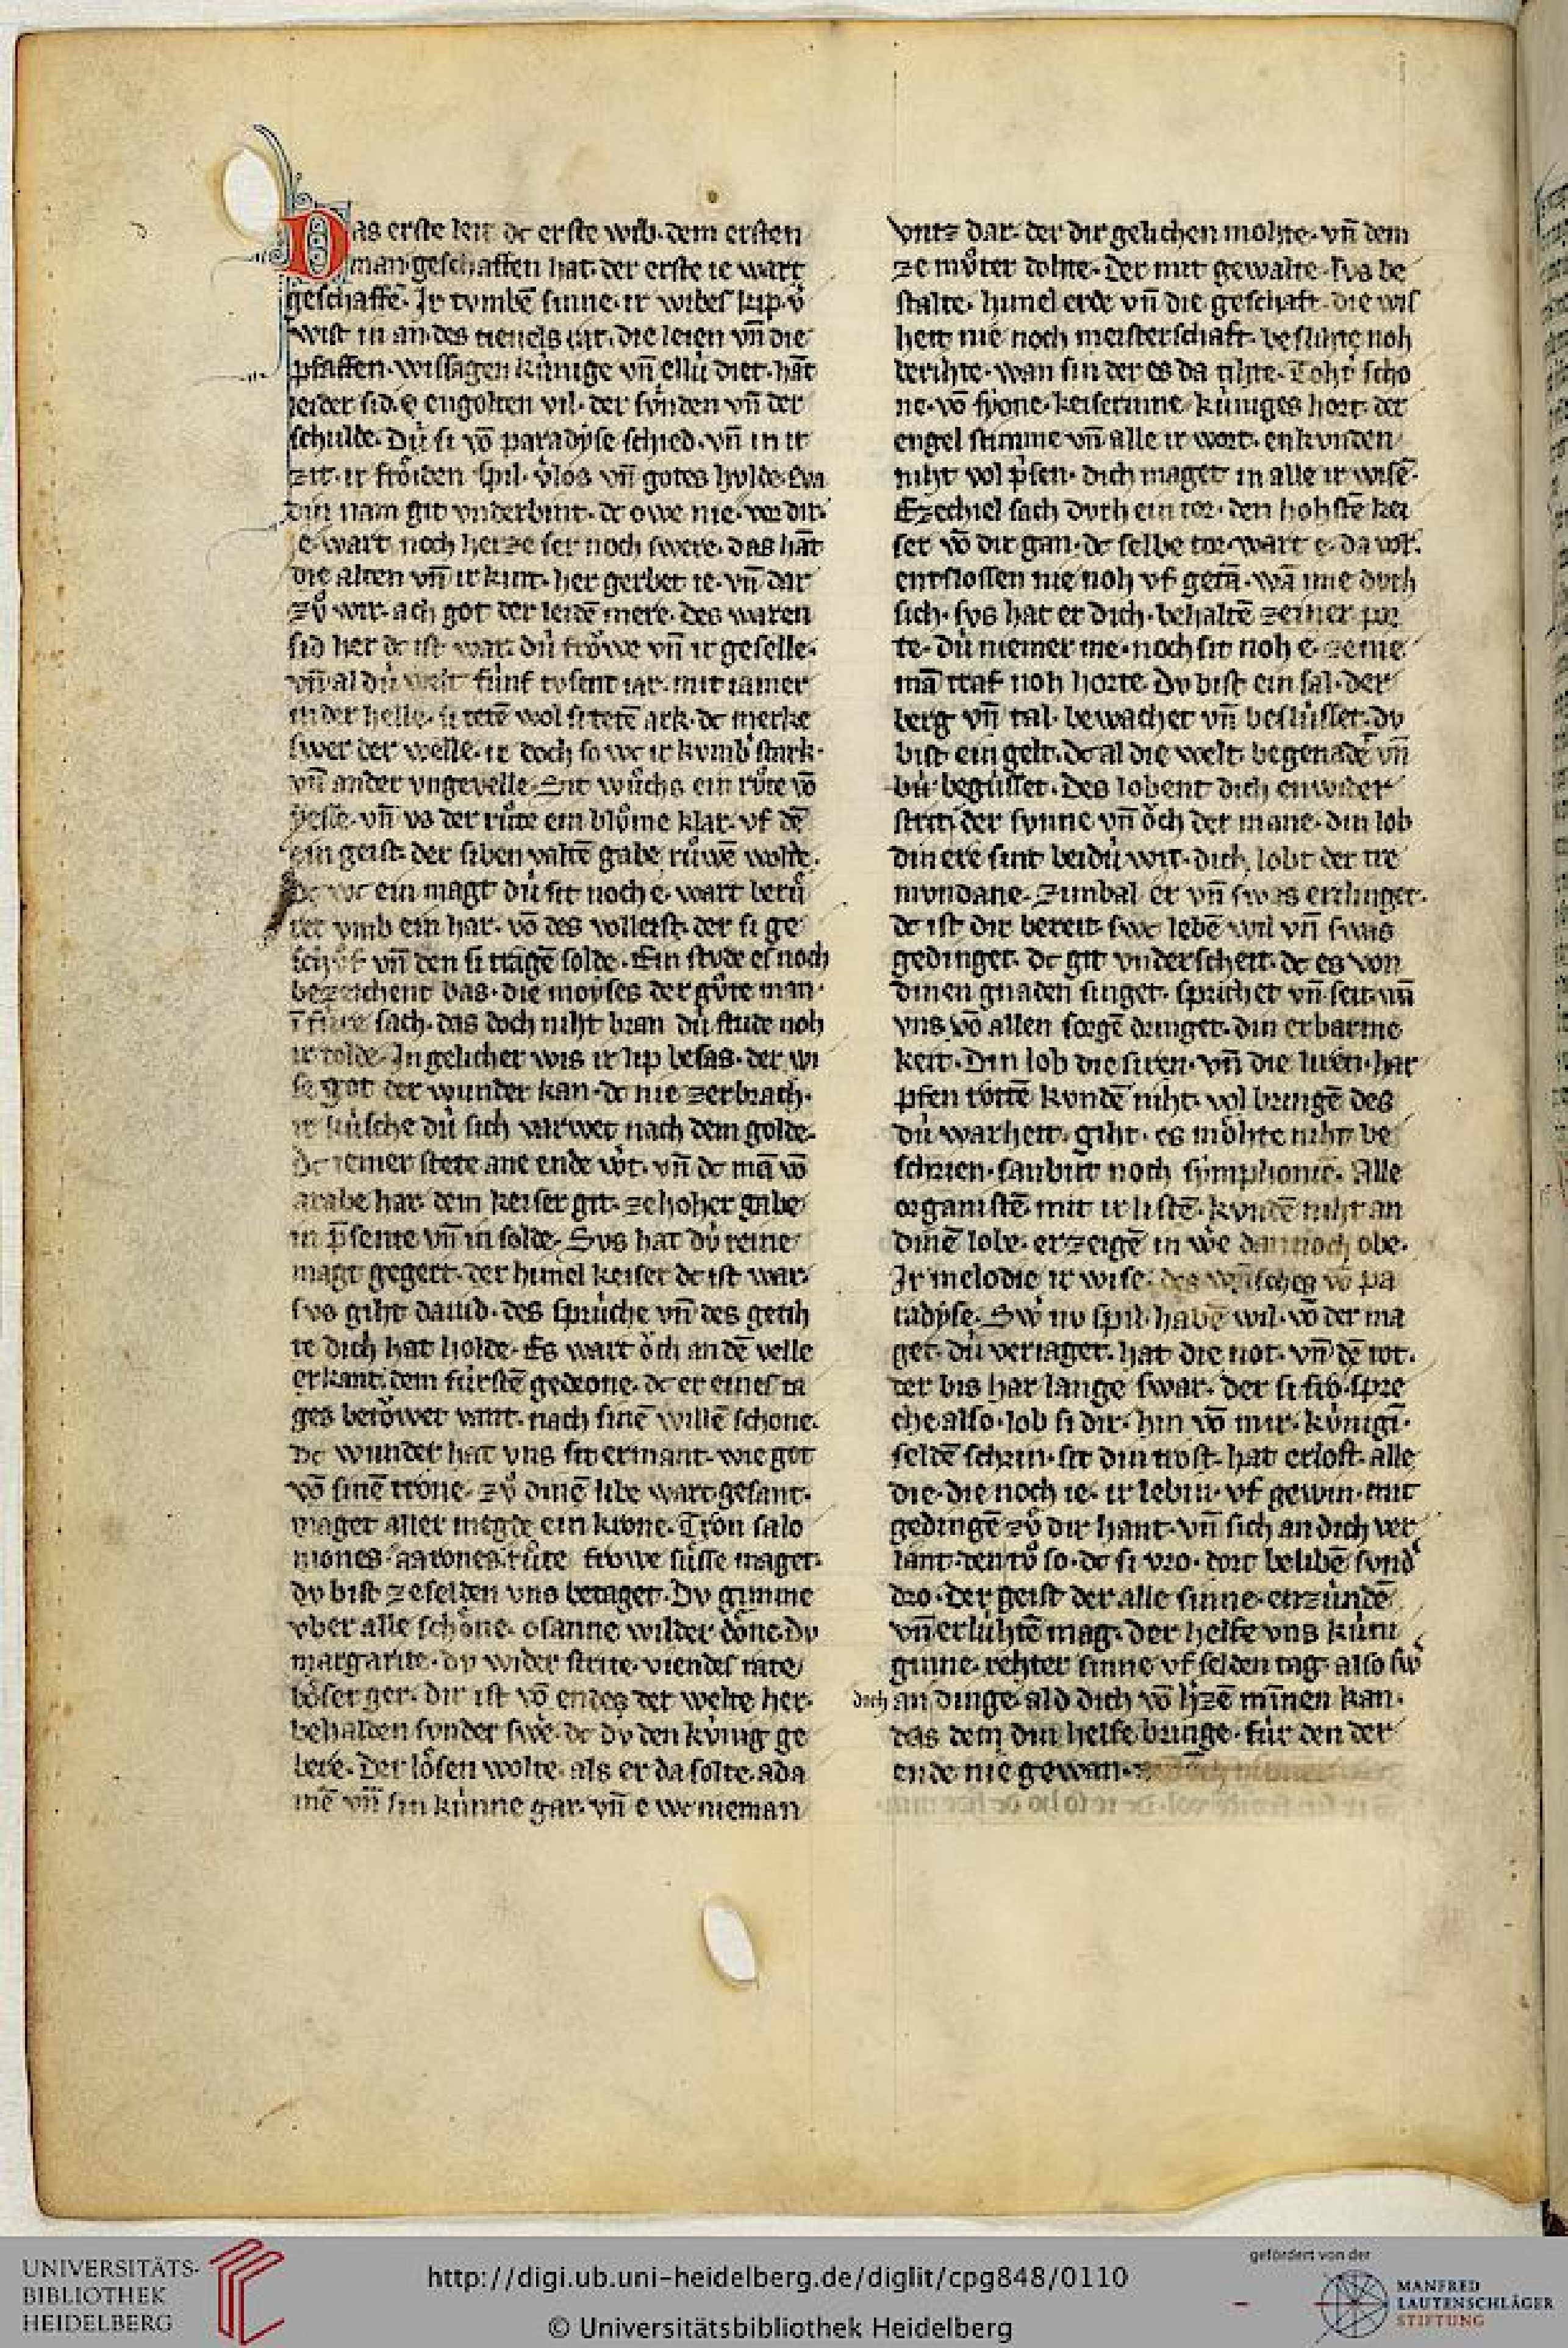 Das erste leit dc erste wib· dem ersten
man geschaffen hat· der erste ie wart
geschaffē· Ir tvmbē sinne· ir wibes lip· v̾
wist in an· des tievels rat· die leien vn̄ die
pfaffen· wissagen kúnige vn̄ ellú diet· hāt
leider sid· e engolten vil· der súnden vn̄ der
schulde· Dú si vō paradyse schied· vn̄ in ir
zit· ir frôiden spil· v̾los vn̄ gotes hulde· Eva
din nam git vnderbint· dc owe nie· vor dir·
e· wart noch herze ser noch swere· das hāt
die alten vn̄ ir kint· her gerbet ie· vn̄ dar
zů wir· ach got der leidē mere· des waren
sid her dc ist war· dú frowe vn̄ ir geselle·
vn̄ al dú welt fúnf tvsent iar· mit iamer
in der helle· si tetē wol si tetē ark· dc merke
swer der welle· ie doch so wc ir kvmb̾ stark·
vn̄ ander vngevelle· Sit wůchs ein růte vō
yesse· vn̄ vs der růte ein blůme klar· vf dē
ein geist· der siben valtē gabe růwē wolde·
dc wc ein magt dú sit noch e· wart berů
ret vmb ein har· vō des volleist· der si ge
schůf vn̄ den si tragē solde· Ein stvde es noch
bezeichent bas· die moyses der gůte man·
ī fúre sach· das doch niht bran dú stude noh
ir tolde· In gelicher wis ir lip besas· der wi
se got der wunder kan· dc nie zerbrach·
ir kúsche dú sich varwet nach dem golde·
Dc iemer stete ane ende w̾t· vn̄ dc mā vō
arabe har· dem keiser git· ze hoher gabe
in p̄sente vn̄ in solde· Svs hat dv̇ reine
magt gegert· der himel keiser dc ist war·
svs giht dauid· des sprúche vn̄ des getih
te dich hat holde· Es wart ôch an dē velle
erkant· dem fúrstē gedeone· dc er eines ta
ges betôwet vant· nach sinē willē schone·
Dc wunder hat vns sit ermant· wie got
vō sinē trone· zů dinē libe wart gesant·
maget aller megde ein krone· Tron salo
mones· aarones růte frowe sússe maget·
dv bist ze selden vns betaget· Dv gimme
vber alle schône· osanne wilder dône· Dv
margarite· dv wider strite· viendes rate
bôser ger· dir ist vō endes der welte her·
behalden svnder swe· dc dv den kúnig ge
bere· Der lôsen wolte· als er da solte· ada
mē vn̄ sin kúnne gar· vn̄ e wc nieman
vntz dar· der dir gelichen mohte· vn̄ dem
ze můter tohte· Der mit gewalte· svs be
stalte· himel erde vn̄ die geschaft· die wis
heit nie noch meisterschaft· besluhte noh
berihte· wan sin der es da tihte· Toht̾ scho
ne· vō syone· keiserinne· kúniges hort· der
engel stimme vn̄ alle ir wort· enkvnden
niht vol p̾sen· dich maget in alle ir wisē·
Ezechiel sach dvrh ein tor· den hohstē kei
ser vō dir gan· dc selbe tor· wart e· da vor·
entslossen nie noh vf getā· wā nie dvrh
sich· svs hat er dich· behaltē zeiner por
te· dú niemer me· noch sit noh e· zenie
mā traf noh horte· Dv bist ein sal· der
berg vn̄ tal· bewachet vn̄ beslússet· dv
bist ein gelt· dc al die welt· begenadet vn̄
begússet· Des lobent dich en wider
strit· der svnne vn̄ ôch der mane· din lob
din ere sint beidú wit· dich lobt der tre
mvndane· Zimbal er vn̄ swas erclinget·
dc ist dir bereit· swc lebē wil vn̄ swas
gedinget· dc git vnderscheit· dc es von
dinen gnaden singet· sprichet vn̄ seit· vn̄
vns vō allen sorgē dringet· din erbarme
keit· Din lob die siren· vn̄ die liren· har
pfen rottē kvndē niht· vol bringē des
dú warheit· giht· es môhte niht be
schrien· tanbur noch symphonie· Alle
organistē· mit ir listē· kvndē niht an
dinē lobe· erzeigē in w̾e dannoch obe·
Ir melodie ir wise· des wunsches vō pa
radyse· Sw̾ nv spil· habē wil· vō der ma
get· dú veriaget· hat die not· vn̄ dē tot·
der bis har lange swar· der si fro· spre
che also· lob si dir· hin vō mir· kúnigī·
seldē schrin· sit din trost· hat erlost· alle
die· die noch ie· ir lebin· vf gewin· mit
gedingē zů dir hant· vn̄ sich an dich ver
lant· den tů so· dc si vro· dort belibē svnd̾
dro· der geist der alle sinne· enzúndē
vn̄ erlúhtē mag· der helfe vns kúni
ginne· rehter sinne vf selden tag· also sw̾
doch an dinge ald dich vō h̾zē mīnen kan·
das dem din helfe bringe· fúr den der
ende nie gewan·
UNIVERSITÄTS-
BIBLIOTHEK
HEIDELBERG
http://digi.ub.uni-heidelberg.de/diglit/cpg848/0110
© Universitätsbibliothek Heidelberg
gefördert von der
MANFRED
LAUTENSCHLÄGER
STIFTUNG